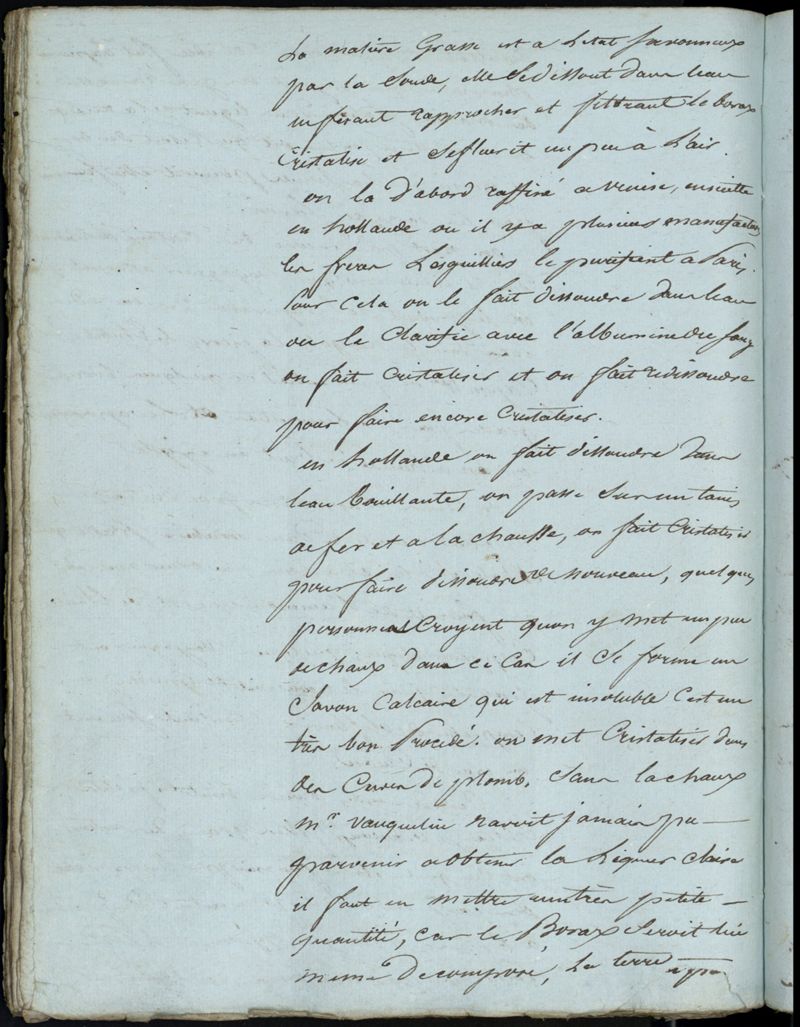 La matière Grasse est a Letat Savonneux
par la Soude, elle Sedissout dans leau
en fesant rapprocher et filtrant le borax
Cristalise et Sefluerit un peu à Lair.
on la d'abord raffiné a venise, ensuitte
en hollande ou il y a plusieurs manufactures
les freres Lesguilliés le purifient a Paris,
Pour Cela on le fait dissoudre dans leau
on le Clarifie avec l'albumine du sang
on fait cristaliser et on fait redissoudre
pour faire encore Cristaliser.
en hollande on fait dissoudre dans
leau bouillante, on passe Sur un tamis
de fer et a la chausse, on fait Cristaliser
pour faire dissoudre de nouveau, quelques
personnes Croyent quon y met un peu
de chaux dans ce Cas il Se forme un
Savon Calcaire qui est insoluble C'est un
très bon Procédé. on met Cristaliser dans
des Cuves de plomb, Sans la chaux
mr. vauquelin navoit jamais pu
parvenir a obtenir la Liqueur Claire
il faut en mettre une très petite
quantité, car le Borax Seroit lui
meme Decomposé, La terre